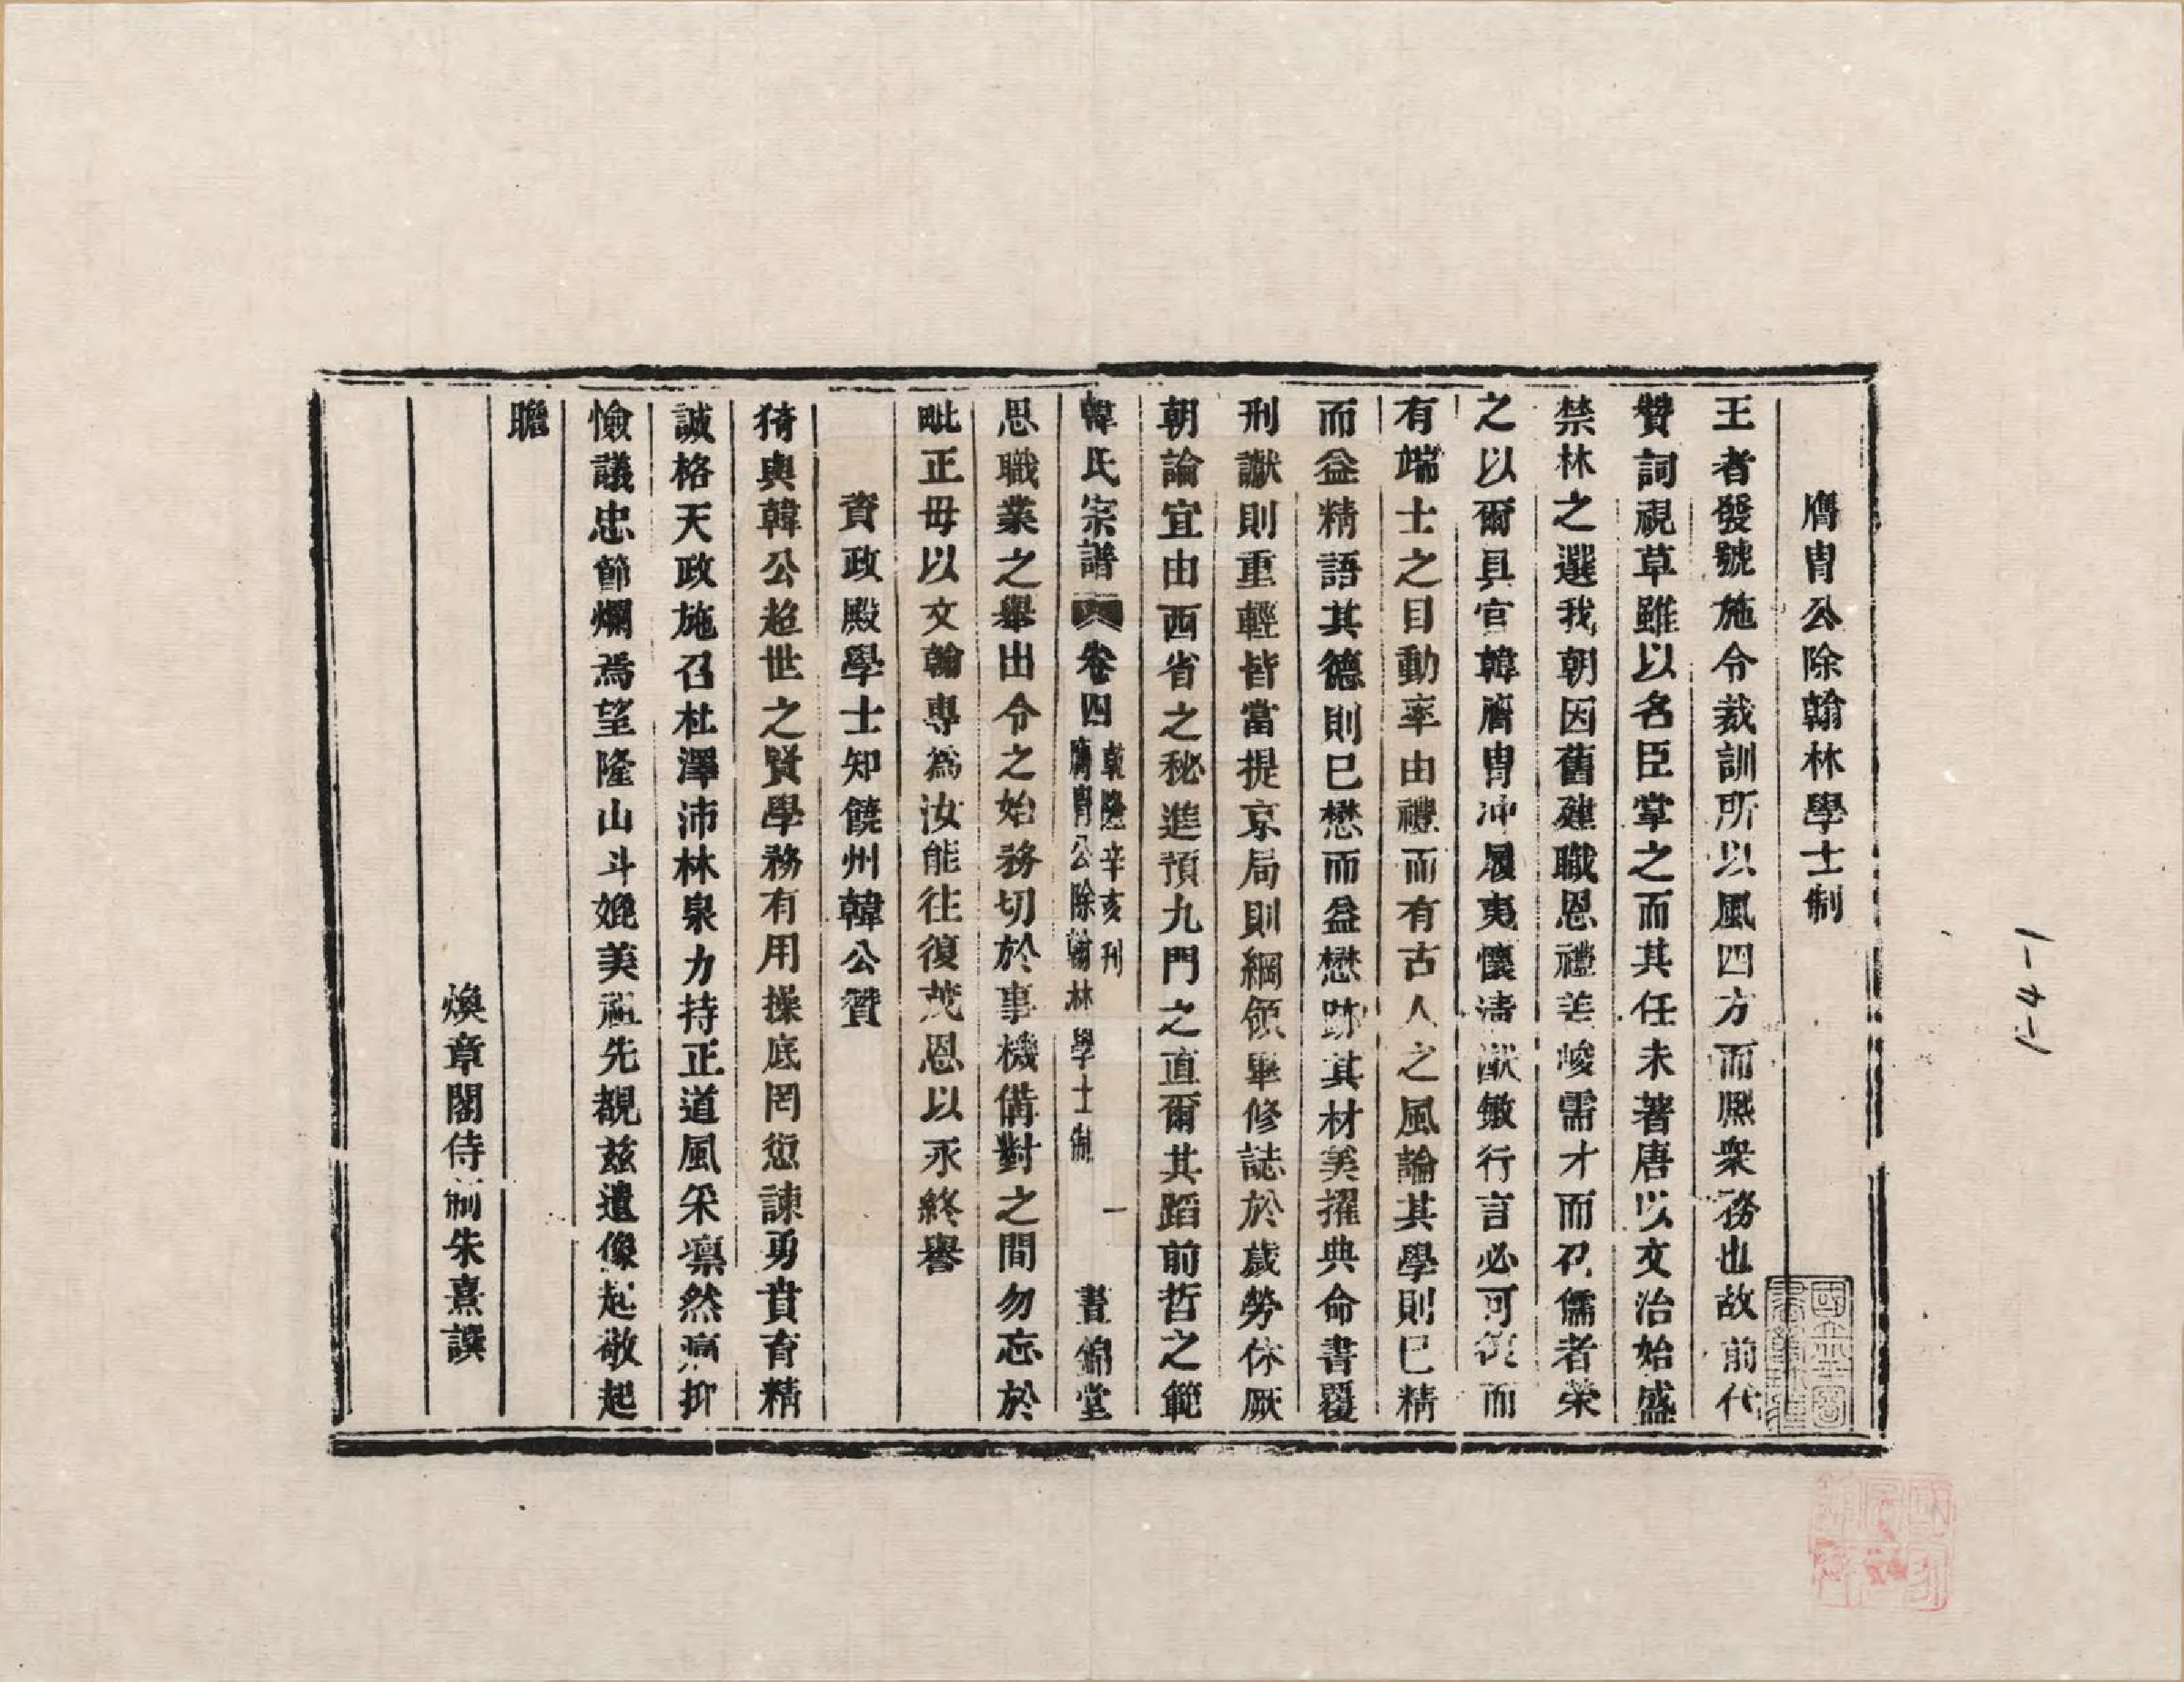 膺胄公除翰林學士制
王者發號施令裁訓所以風四方而熙衆務也故前代
贊詞視草雖以名臣掌之而其任未著唐以文治始盛
禁林之選我朝因舊建職恩禮差峻需才而召儒者榮
之以爾具官韓膺胄冲履夷懷淸猷敏行言必可復而
有端士之目動率由禮而有古人之風論其學則已精
而益精語其德則已懋而益懋跡其材美擢典命書覆
刑讞則重輕皆當提京局則綱領畢修誌於歲勞休厥
朝論宜由西省之秘進預九門之直爾其蹈前哲之範
韓氏宗譜 卷四 乾隆辛亥刊 膺胄公除翰林學士制 一 晝錦堂
思職業之舉出令之始務切於事機備對之間勿忘於
毗正毋以文翰專爲汝能往復茂恩以永終譽
資政殿學士知饒州韓公贊
猗與韓公超世之賢學務有用操底罔愆諫勇賁育精
誠格天政施召杜澤沛林泉力持正道風采凜然痛抑
憸議忠節爛焉望隆山斗媲美祖先覩兹遺像起敬起
瞻
煥章閣侍制朱熹譔